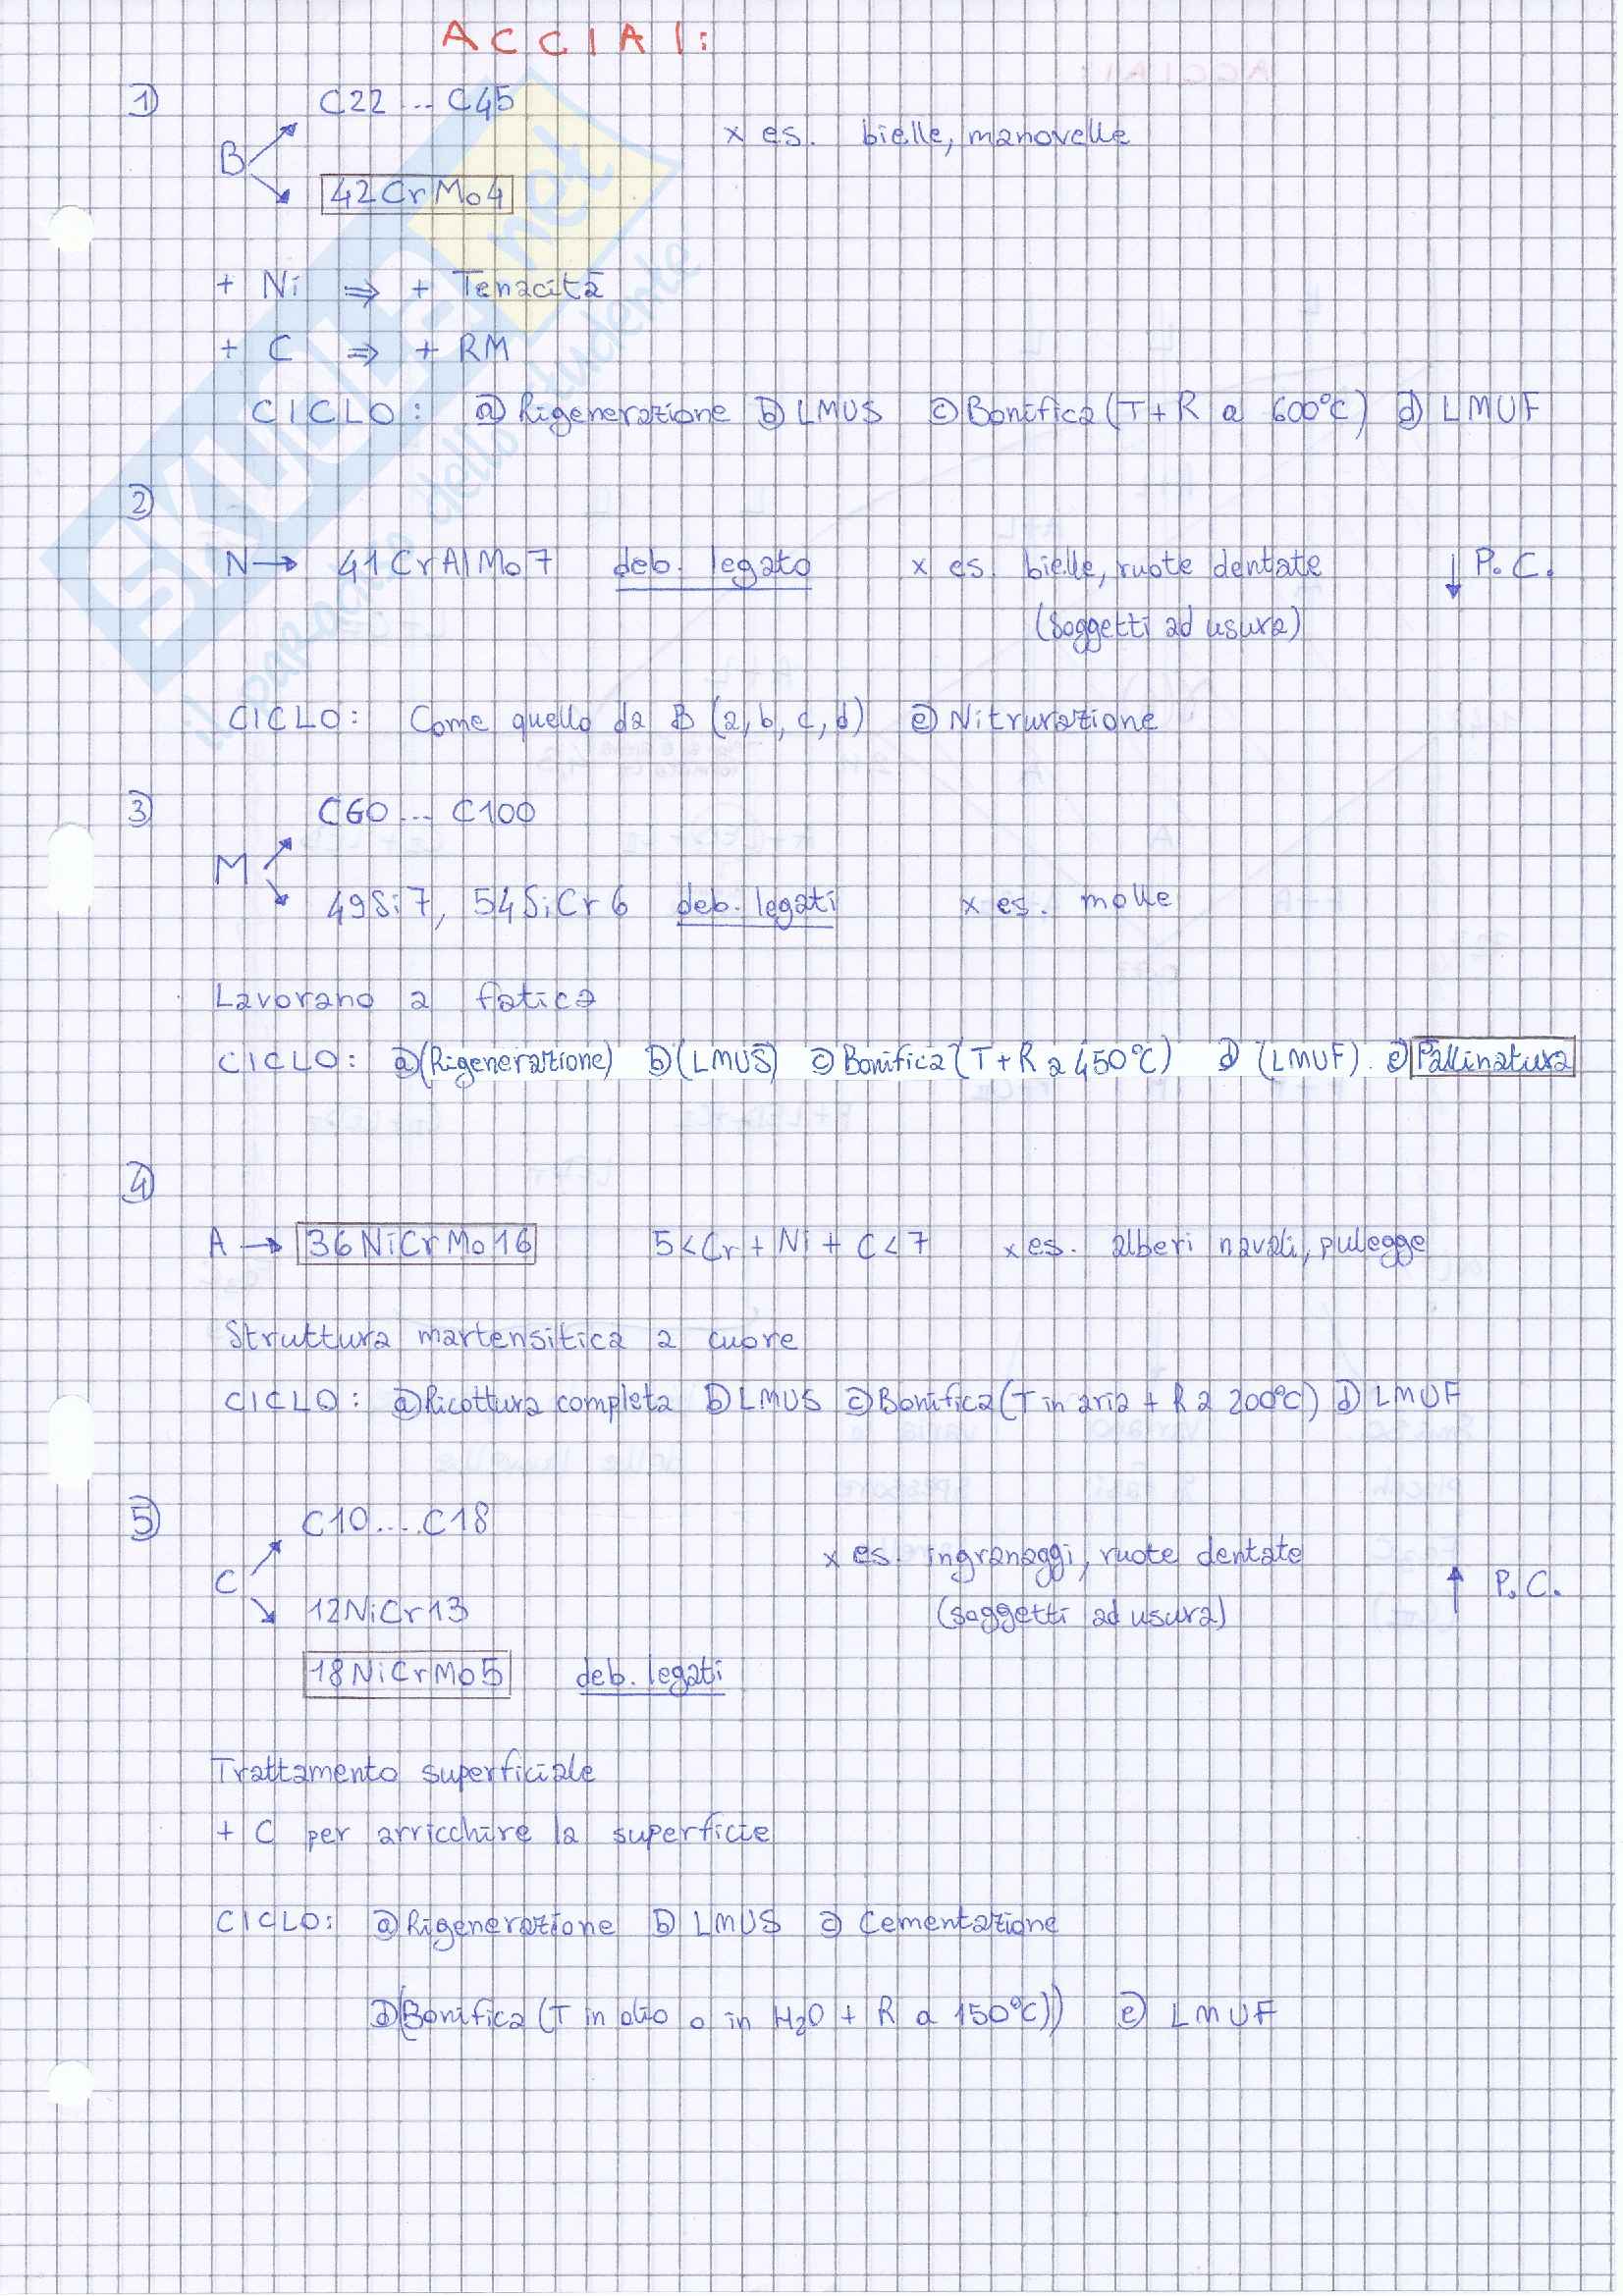 ACCIAI:
1)
C22 ... C45
B
x es. bielle, manovelle
42CrMo4
+ Ni ⇒ + Tenacità
+ C ⇒ + RM
CICLO: a) Rigenerazione b) LMUS c) Bonifica (T+R a 600°C) d) LMUF
2)
N → 41CrAlMo7 deb. legato x es. bielle, ruote dentate ↓ P.C.
(soggetti ad usura)
CICLO: Come quello da B (a, b, c, d) e) Nitrurazione
3)
C60 ... C100
M
49Si7, 54SiCr6 deb. legati x es. molle
Lavorano a fatica
CICLO: a) (Rigenerazione) b) (LMUS) c) Bonifica (T+R a 450°C) d) (LMUF) e) Pallinatura
4)
A → 36NiCrMo16 5<Cr+Ni+C<7 x es. alberi navali, pulegge
Struttura martensitica a cuore
CICLO: a) Ricottura completa b) LMUS c) Bonifica (T in aria + R a 200°C) d) LMUF
5)
C10....C18
x es. ingranaggi, ruote dentate
C
↑ P.C.
12NiCr13
(soggetti ad usura)
18NiCrMo5 deb. legati
Trattamento superficiale
+ C per arricchire la superficie
CICLO: a) Rigenerazione b) LMUS c) Cementazione
d) (Bonifica (T in olio o in H2O + R a 150°C)) e) LMUF
SKUOLA.net
il paradiso dello studente